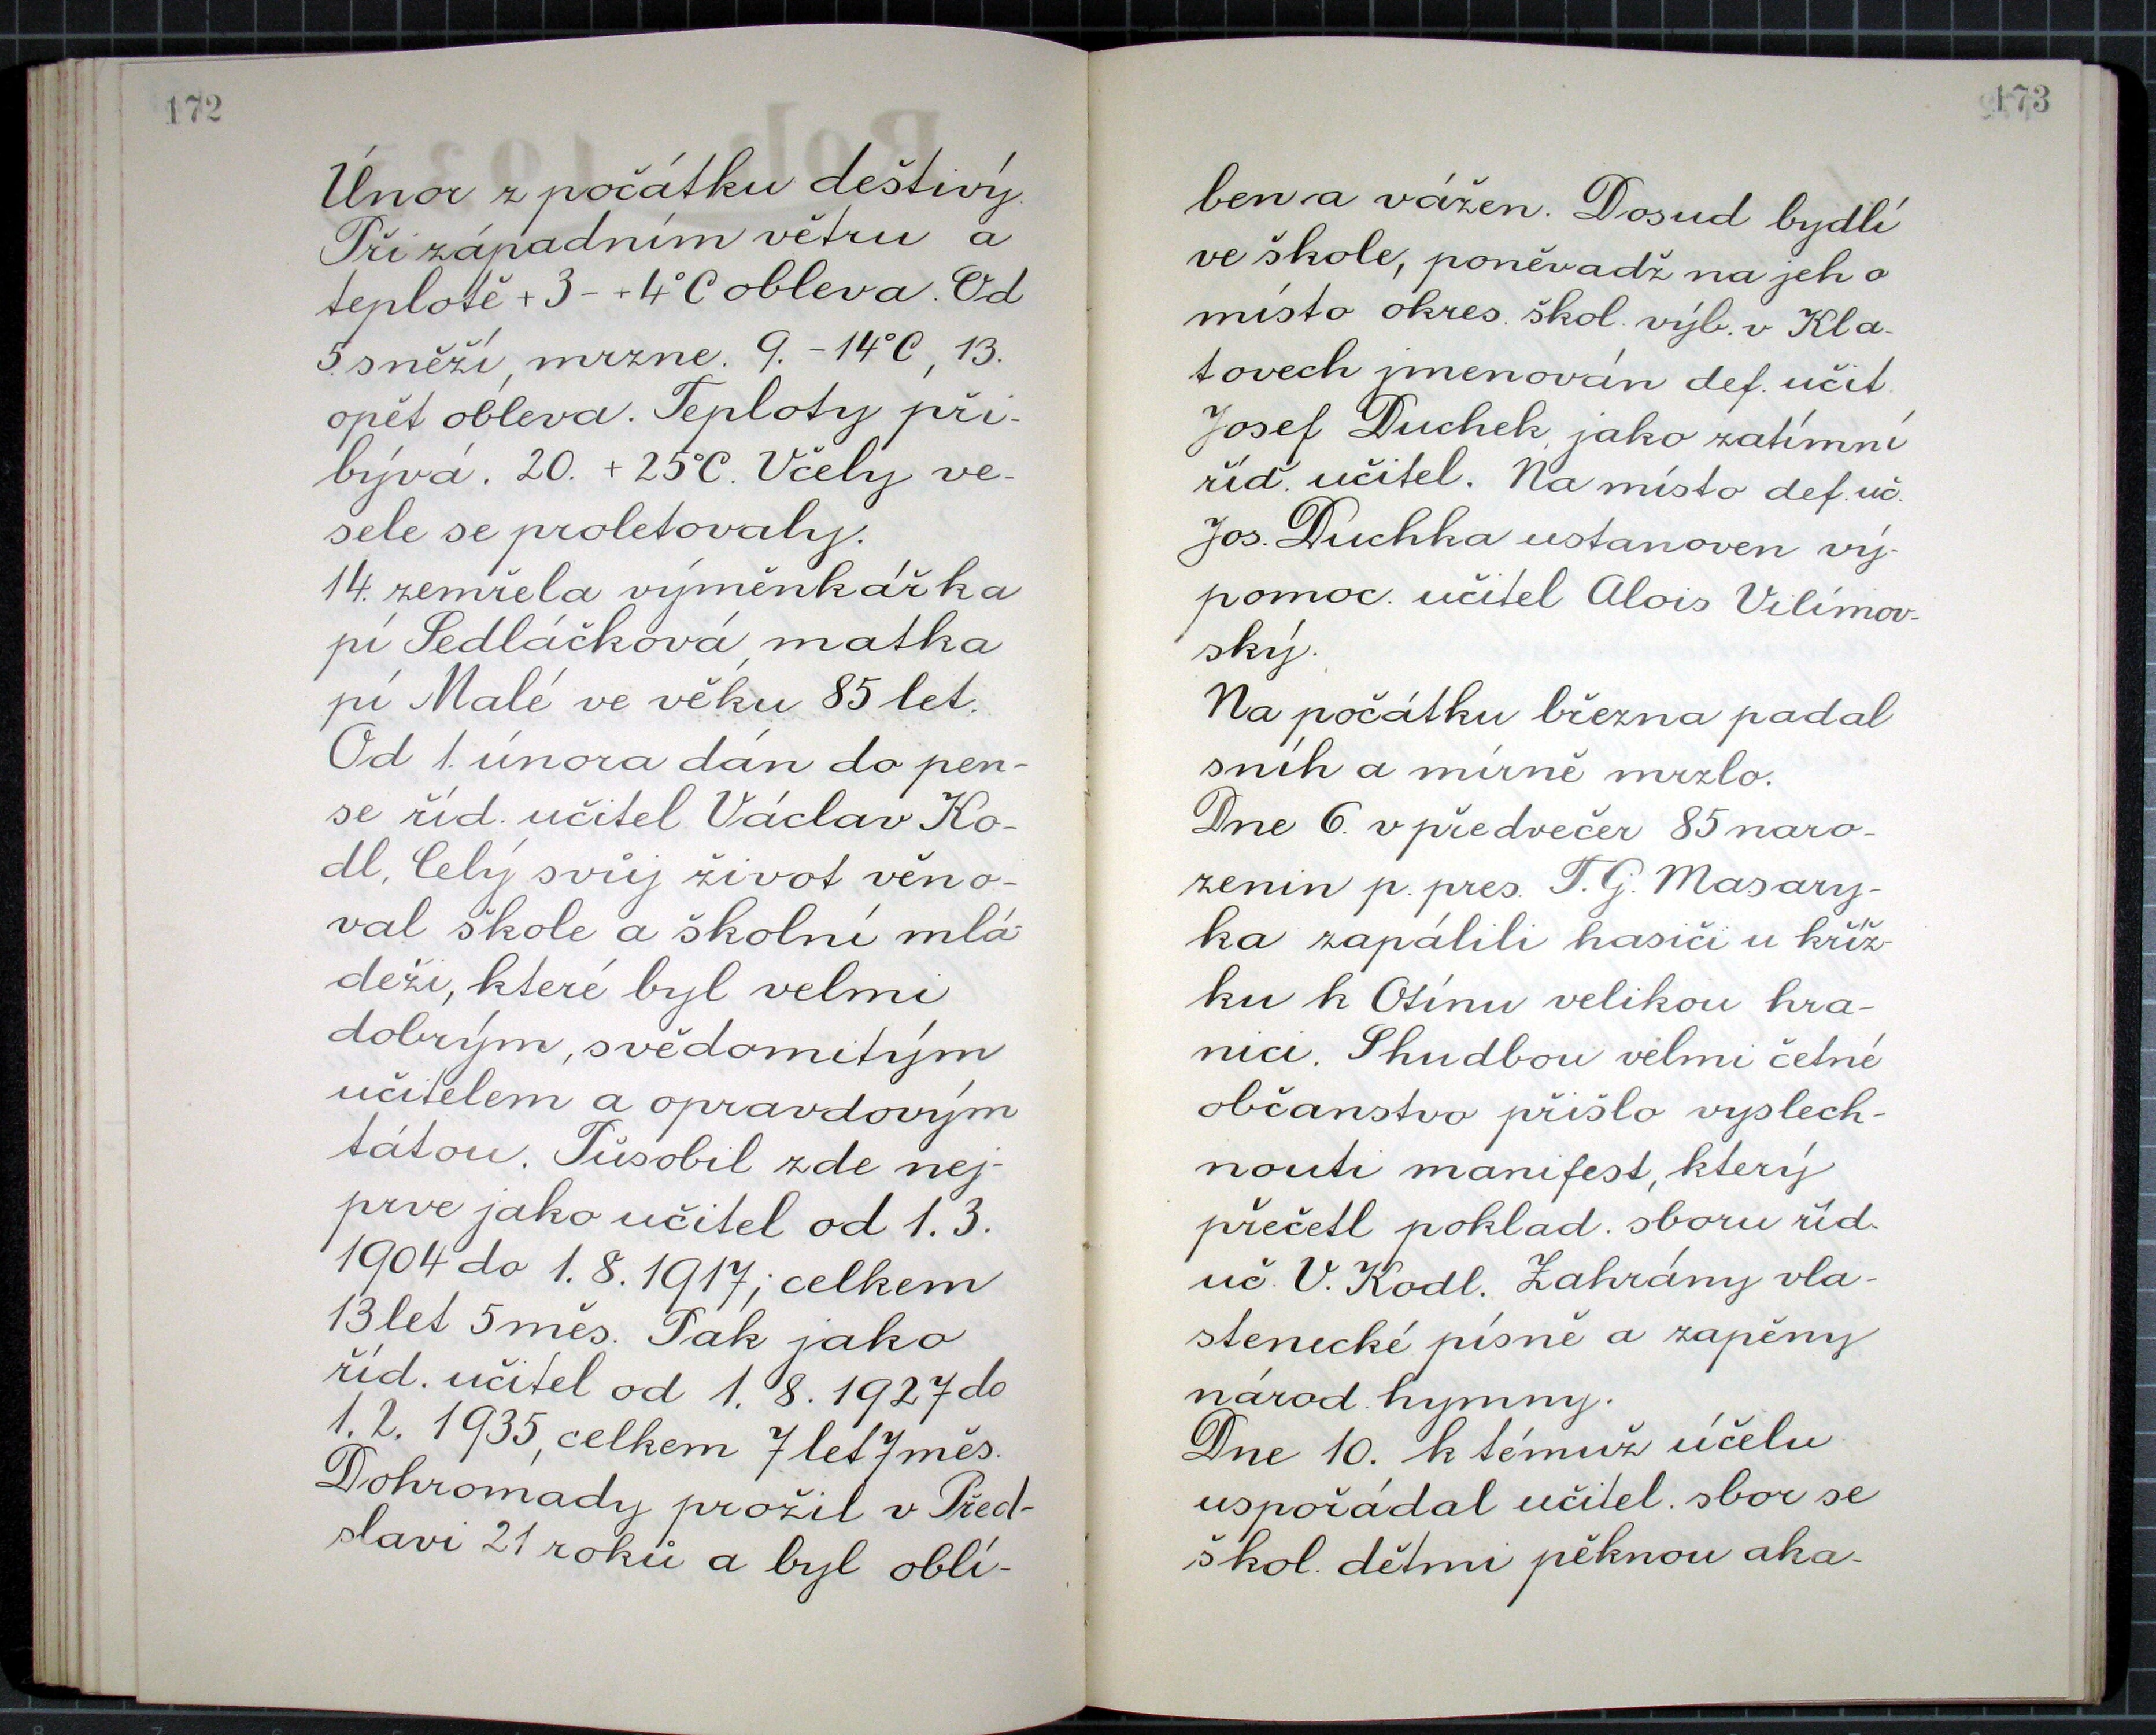 172
Únor z počátku deštivý.
Při západním větru a
teplotě +3 - +4°C obleva. Od
5. sněží, mrzne. 9. -14°C, 13.
opět obleva. Teploty při-
bývá. 20. +25°C. Včely ve-
sele se proletovaly.
14. zemřela výměnkářka
pí Sedláčková, matka
pí Malé ve věku 85 let.
Od 1. února dán do pen-
se říd. učitel Václav Ko-
dl, Celý svůj život věno-
val škole a školní mlá-
deži, které byl velmi
dobrým, svědomitým
učitelem a opravdovým
tátou. Působil zde nej-
prve jako učitel od 1. 3.
1904 do 1. 8. 1917; celkem
13 let 5 měs. Pak jako
říd. učitel od 1. 8. 1927 do
1. 2. 1935, celkem 7 let 7 měs.
Dohromady prožil v Před-
slavi 21 roků a byl oblí-
173
ben a vážen. Dosud bydlí
ve škole, poněvadž na jeho
místo okres. škol. výb. v Kla-
tovech jmenován def. učit.
Josef Duchek, jako zatímní
říd. učitel. Na místo def. uč.
Jos. Duchka ustanoven vý-
pomoc. učitel Alois Vilímov-
ský.
Na počátku března padal
sníh a mírně mrzlo.
Dne 6. v předvečer 85 naro-
zenin p. pres. T. G. Masary-
ka zapálili hasiči u kříž-
ku k Otínu velikou hra-
nici. S hudbou velmi četné
občanstvo přišlo vyslech-
nouti manifest, který
přečetl poklad. sboru říd.
uč. V. Kodl. Zahrány vla-
stenecké písně a zapěny
národ. hymny.
Dne 10. k témuž účelu
uspořádal učitel. sbor se
škol. dětmi pěknou aka-